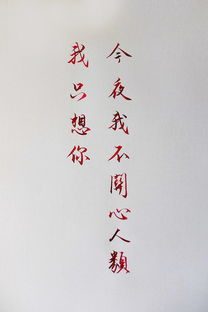 今夜我不關心人類
我只想你